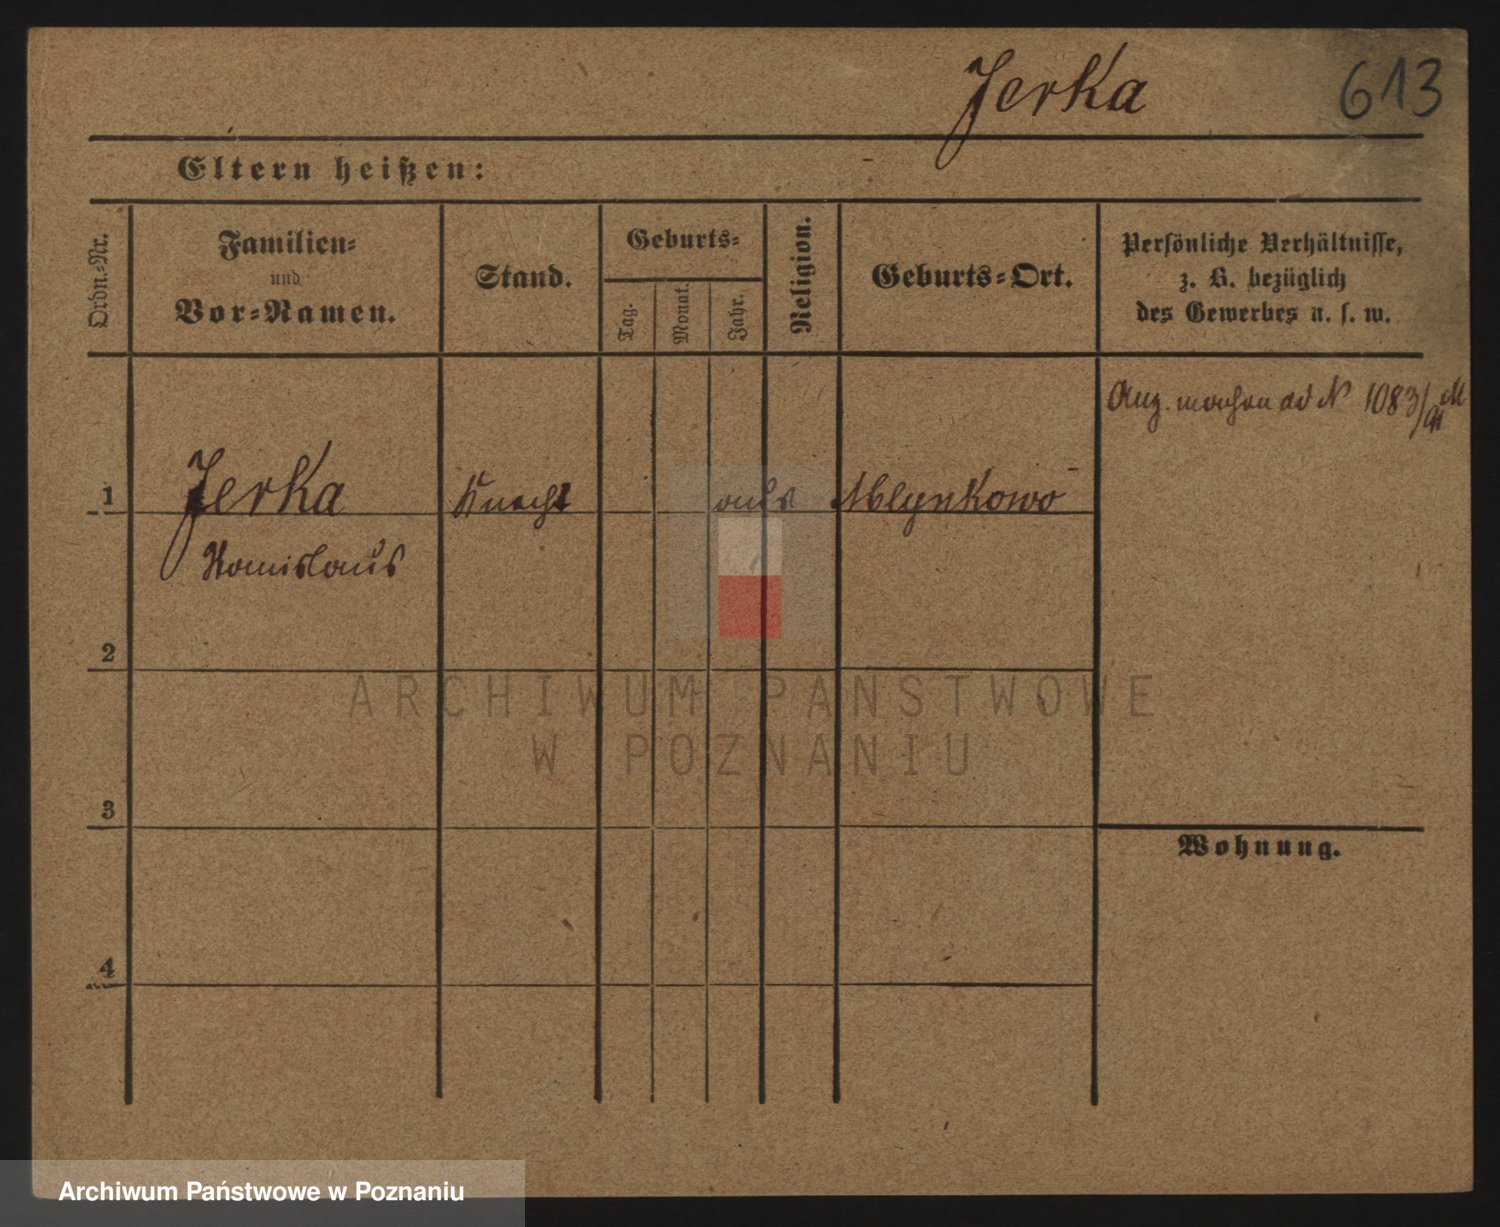 Jerka 613
Eltern heißen:
Ordn.-Nr.
Familien-
und
Vor-Namen.
Stand.
Geburts-
Tag.
Monat.
Jahr.
Religion.
Geburts-Ort.
Persönliche Verhältnisse,
z. B. bezüglich
des Gewerbes u. s. w.
ad N 1083/91 M
1 Jerka Knecht aus Mlynkowo
Stanislaus
2
3
4
Wohnung.
ARCHIWUM PAŃSTWOWE
W POZNANIU
Archiwum Państwowe w Poznaniu